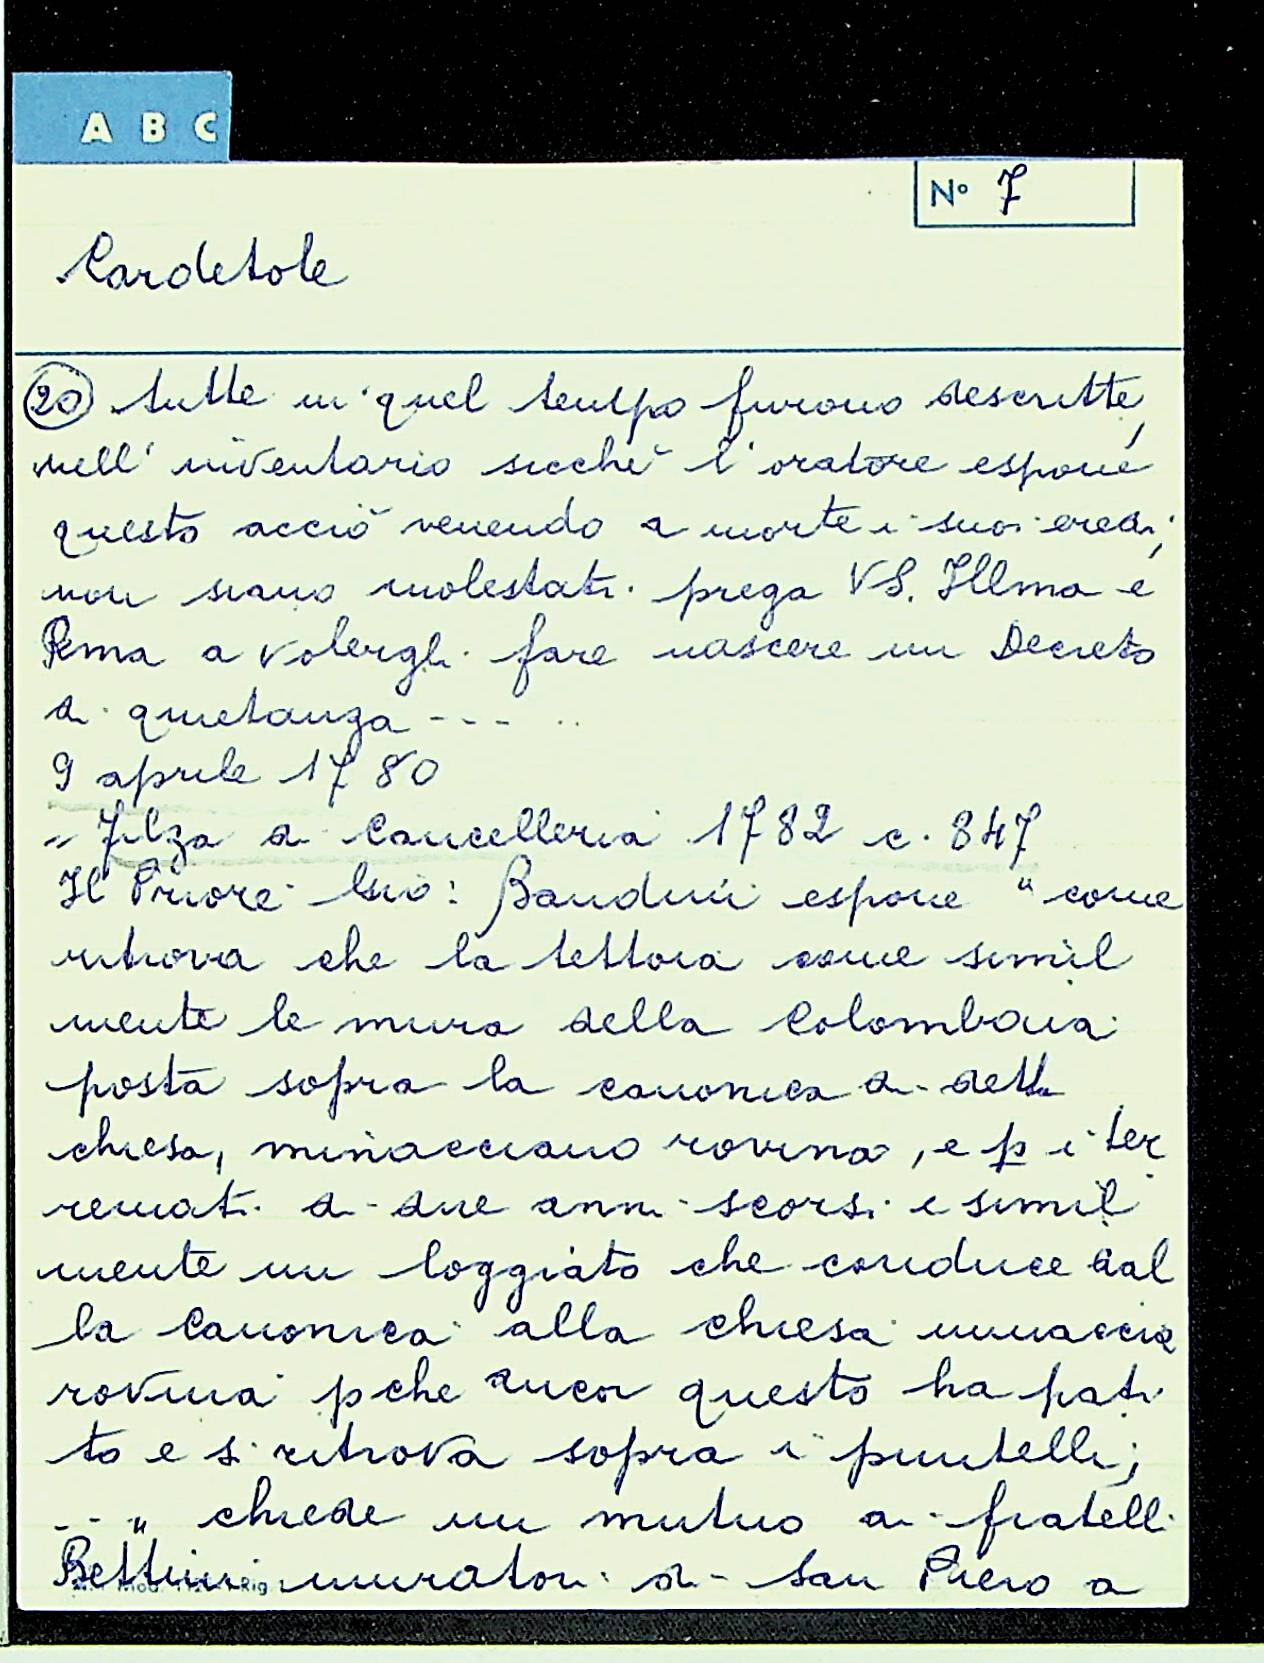 A B C
N° 7
Cardetole
20 tutte in quel tempo furono descritte
nell' inventario sicchè l'oratore espone
questo acciò venendo a morte i suoi eredi,
non siano molestati. prega VS. Illma e
Rma a volergli fare nascere un Decreto
di quietanza --- ..
9 aprile 1780
= Filza di Cancelleria 1782 c. 847
Il Priore Gio: Bandini espone " come
ritrova che la tettoia come simil
mente le mura della Colombaia
posta sopra la canonica di detta
chiesa, minacciano rovina, e p i ter
remoti di due anni scorsi e simil
mente un loggiato che conduce dal
la Canonica alla chiesa minaccia
rovina pche ancor questo ha pati
to e si ritrova sopra i puntelli;
--- " chiede un mutuo ai fratelli
Bettini muratori di San Piero a
Rig